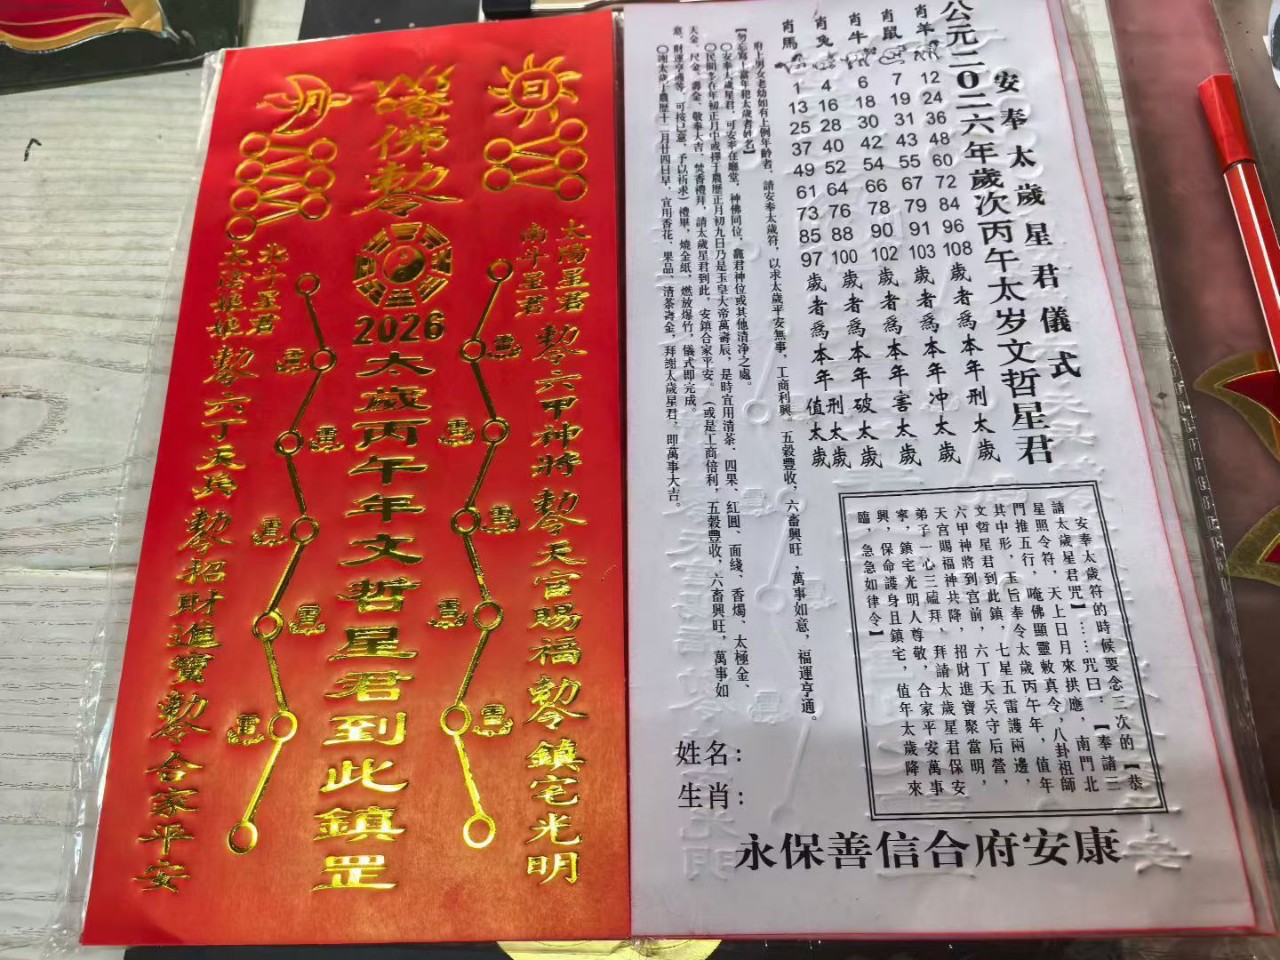 日
月
唵佛勅令
2026
太歲丙午年文哲星君到此鎮罡
太陽星君
南斗星君
勅令六甲神將勅令天官賜福勅令鎮宅光明
北斗星君
太陰娘娘
勅令六丁天兵勅令招財進寶勅令合家平安
安奉太歲星君儀式
公元二〇二六年歲次丙午太岁文哲星君
肖羊 12 24 36 48 60 72 84 96 108 歲者爲本年刑太歲
肖鼠 7 19 31 43 55 67 79 91 103 歲者爲本年冲太歲
肖牛 6 18 30 42 54 66 78 90 102 歲者爲本年害太歲
肖兔 4 16 28 40 52 64 76 88 100 歲者爲本年破太歲
肖馬 1 13 25 37 49 61 73 85 97 歲者爲本年值太歲刑太歲
府上男女老幼如有上例年齡者，請安奉太歲符，以求太歲平安無事，工商利興，五穀豐收，六畜興旺，萬事如意，福運亨通。
【勿忘寫上當年犯太歲者姓名】
〇安奉太歲星君，可安奉在廳堂，神佛同位，龕君神位或其他清净之處。
〇民間多在年初正月中或擇于農歷正月初九日乃是玉皇大帝萬壽辰，是時宜用清茶、四果、紅圓、面綫、香燭、太極金、
天金、尺金、壽金、敬奉大吉，焚香禮拜，請太歲星君到此，安鎮合家平安。（或是工商倍利，五穀豐收，六畜興旺，萬事如
意，財運亨通等，可按已意，予以祈求）禮畢，燒金紙，燃放爆竹，儀式即完成。
〇謝太歲于農歷十二月廿四日早，宜用香花、果品、清茶壽金，拜謝太歲星君，即萬事大吉。
安奉太歲符的時候要念三次的【恭
請太歲星君咒】……咒曰：【奉請三
星照令符，天上日月來拱應，南門北
門推五行，唵佛顯靈敕真令，八卦祖師
其中形，玉旨奉令太歲丙午年，值年
文哲星君到此鎮，七星五雷護兩邊，
六甲神將到宫前，六丁天兵守后營，
天宫賜福神共降，招財進寶聚當明，
弟子一心三磕拜，拜請太歲星君保安
寧，鎮宅光明人尊敬，合家平安萬事
興，保命護身且鎮宅，值年太歲降來
臨，急急如律令】
姓名：
生肖：
永保善信合府安康